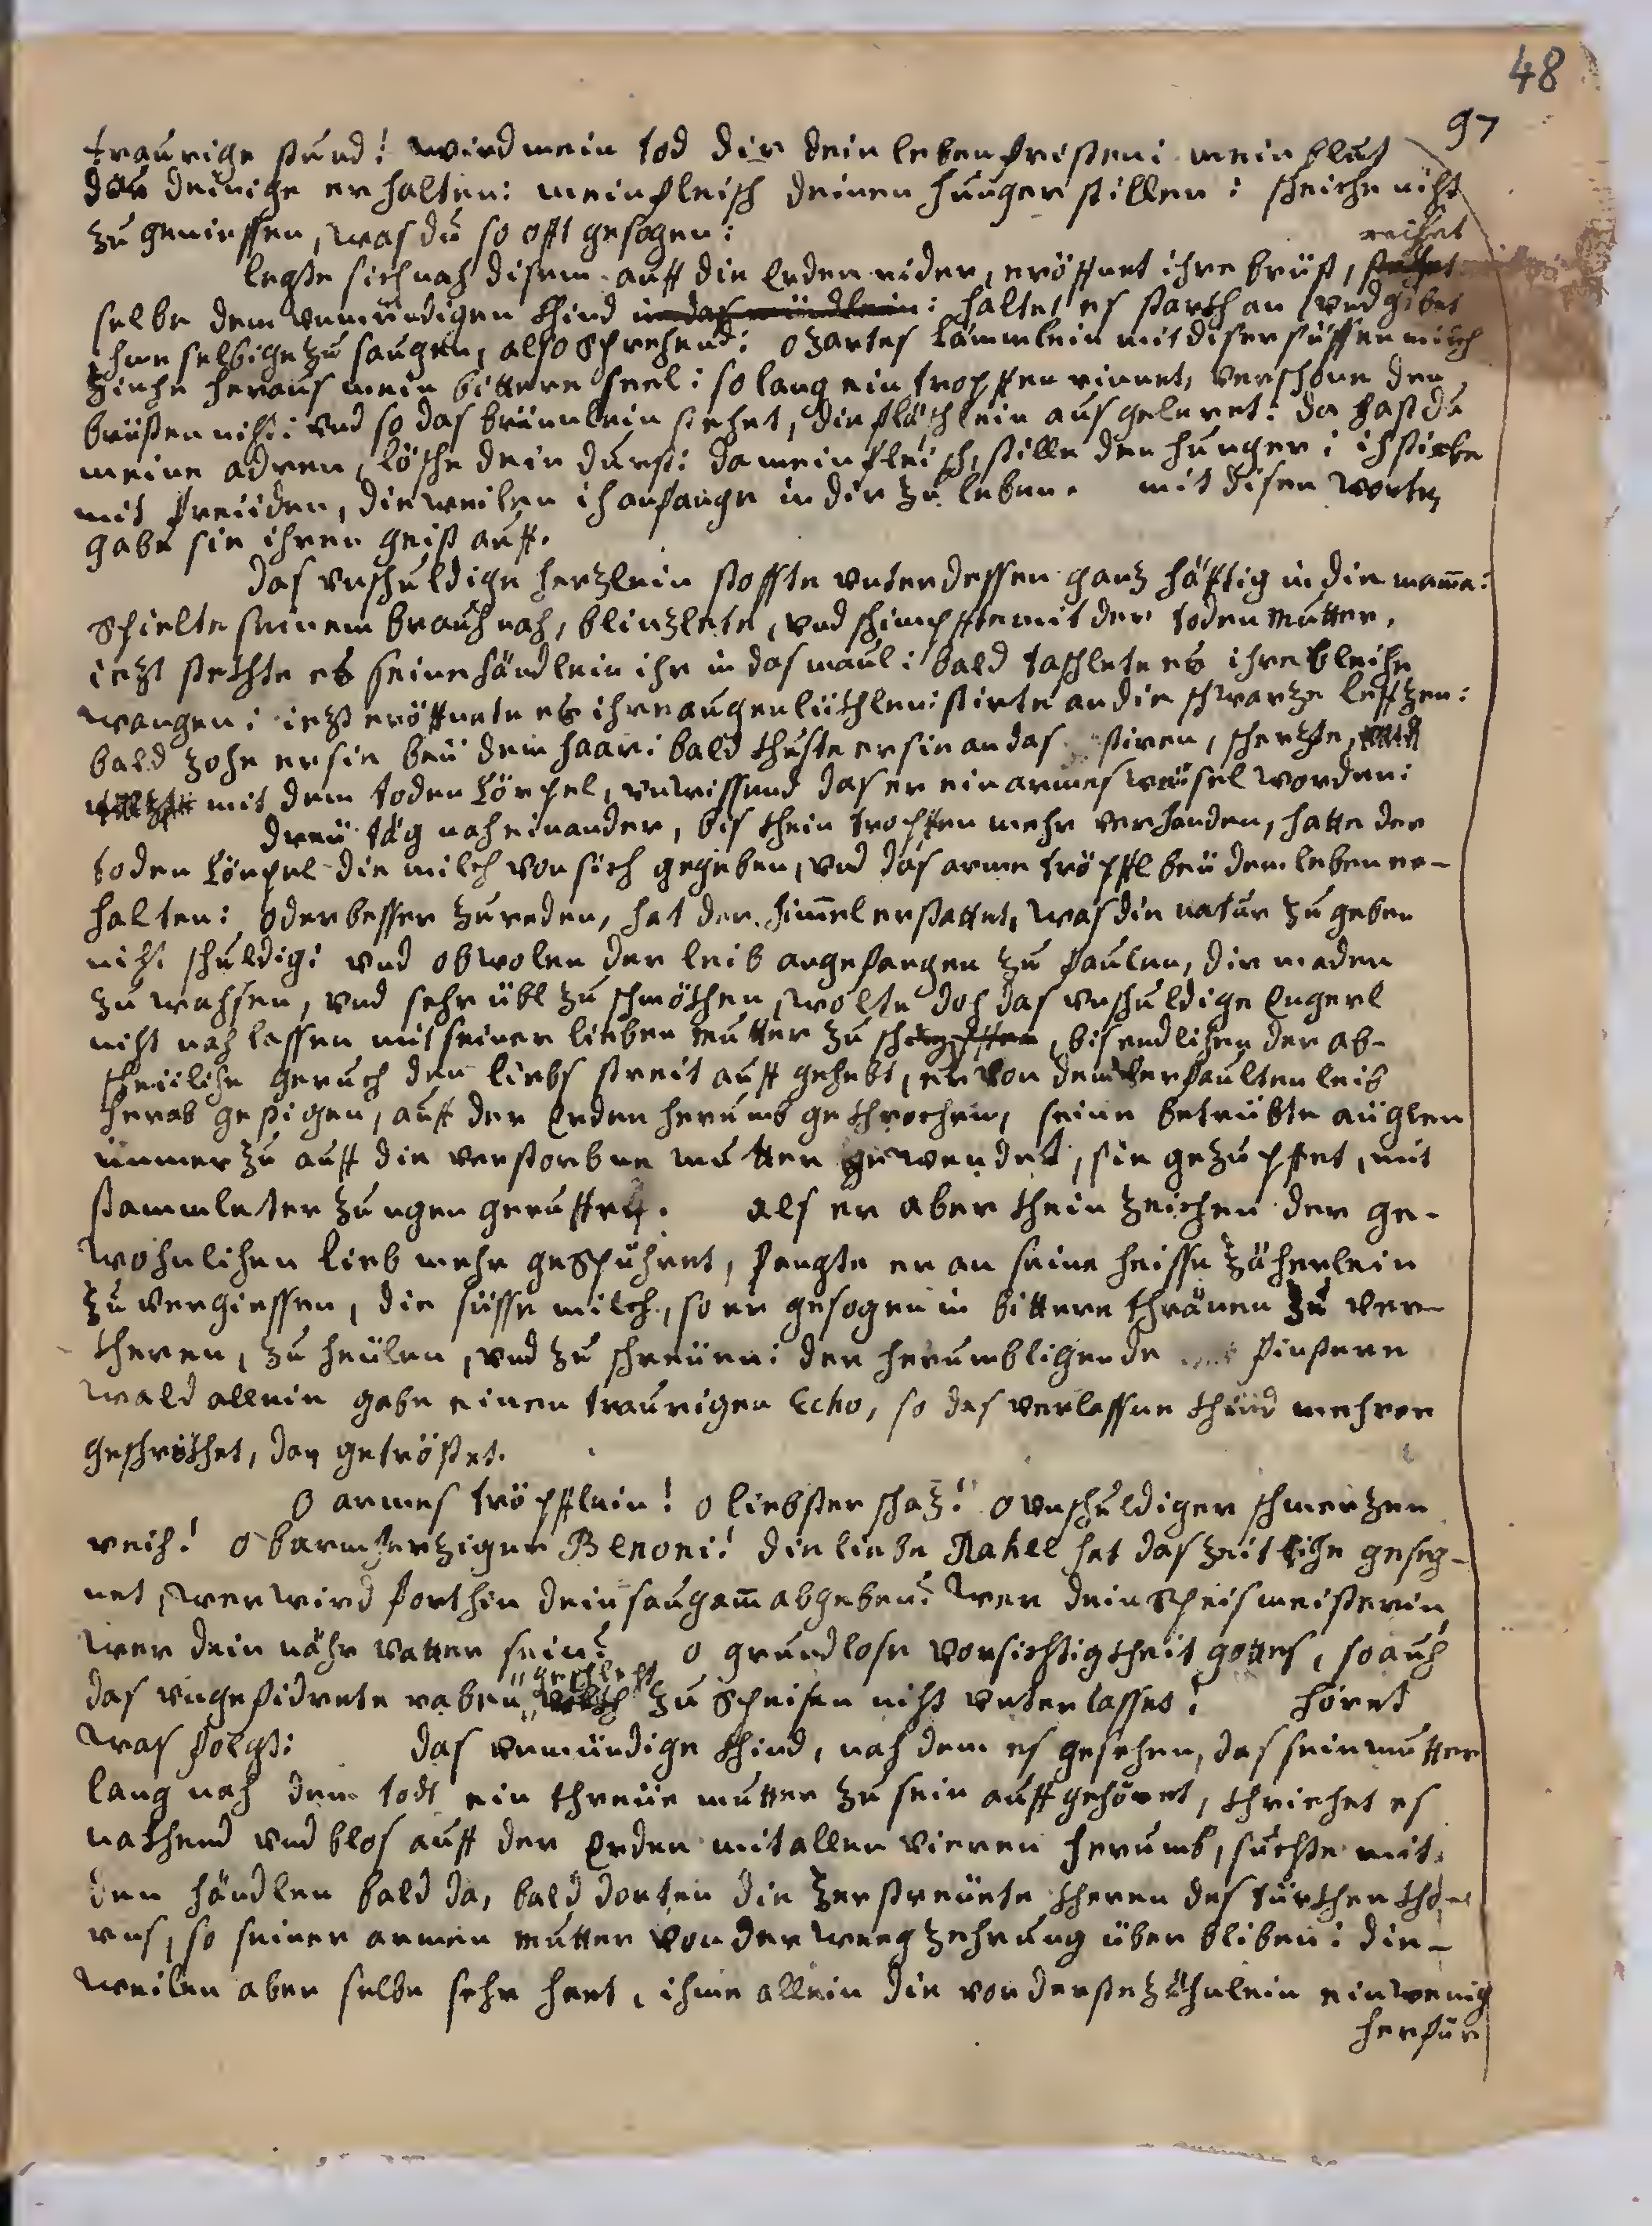 48
97
traurige stund! wird mein tod dir dein leben fristen: mein blut
das deinige erhalten: mein fleisch deinen hunger stillen: scheiche nicht
zu geniessen, was du so offt gesogen:
reichet
legste sich nach disem auff die Erden nider, eröffnet ihre brüst,
selbe dem unmündigen khind in das mündlein: haltet es starckh an vnd gibet
ihme selbige zu saugen, also sprechend: o zartes lämmlein mit diser süssen milch
ziehe heraus mein bittere seel: so lang ein tropffen rinnet, verschone den
brüsten nicht: vnd so das brünnlein stehet, die fläschlein ausgeleret: da hast du
meine adren, lösche dein durst: da mein fleisch, stille den hunger: ich stirbe
mit freüden, dieweilen ich anfange in dir zu leben. mit disen worten
gabe sie ihren geist auff.
das vnschuldige hertzlein stosste vnterdessen gantz häfftig in die mamma:
spielte seinem brauch nach, blinzlete, vnd schimpffte mit der toden mutter.
iezt steckhte es seine händlein ihr in das maul: bald taschlete es ihre bleiche
wangen: iezt eröffnete es ihre augenlückhlen: stirte an die schwarze leffzen:
bald zohe er sie beü dem haar: bald khuste er sie an das stiren, scherzte,
mit dem toden Cörpel, vnwissend das er ein armes waisel worden:
dreü täg nacheinander, bis khein tropffen mehr verhanden, hatte der
toden Cörpel die milch von sich gegeben, vnd das arme tröpffl beü dem leben er-
halten: oder besser zu reden, hat der himmel erstattet, was die natur zu geben
nicht schuldig: vnd obwolen der leib angefangen zu faulen, die maden
zu wachsen, vnd sehr übl zu schmökhen, wolte doch das vnschuldige Engerl
nicht nachlassen mit seiner lieben mutter zu schimpffen, bis endlichen der ab-
scheüliche geruch den liebs streit auff gehebt, er von dem verfaulten leib
herab gestigen, auff der Erden herumb gekhrochen, seine betrübte äuglen
immerzu auff die verstorbne mutter gewendet, sie gezupffet, mit
stammleter zungen geruffen. als er aber khein zeichen der ge-
wohnlichen lieb mehr gespühret, fangte er an seine heisse zäherlein
zu vergiessen, die süsse milch, so er gesogen in bittere thränen zu ver-
kheren, zu heülen, vnd zu schreüen: der herumbligende finstere
wald allein gabe einen traurigen Echo, so das verlassne khind mehrer
geschröckhet, dan getröstet.
O armes tröpfflein! o liebster schaz! o vnschuldiger schmerzen
reich! o barmherziger Benoni! die liebe Rahel hat das zeitliche geseg-
net, wer wird forthin dein saugamm abgeben? wer dein speismeisterin
wer dein nähr vatter sein? o grundlose vorsichtigkheit gottes, so auch
geschlecht
das vngefidrete raben zu speisen nicht vnterlasset! höret
was folgt: das vnmündige khind, nach dem es gesehen, das sein mutter
lang nach dem todt ein threüe mutter zu sein auffgehöret, khriechet es
nackhend vnd blos auff der Erden mit allen vieren herumb, suchte mit
den händlen bald da, bald dorten die zerstreüete kheren des türckhen kho-
rns, so seiner armen mutter von der weeg zehrung über bliben: die-
weilen aber selbe sehr hart, ihme allein die vorderste zähnlein ein wenig
herfür